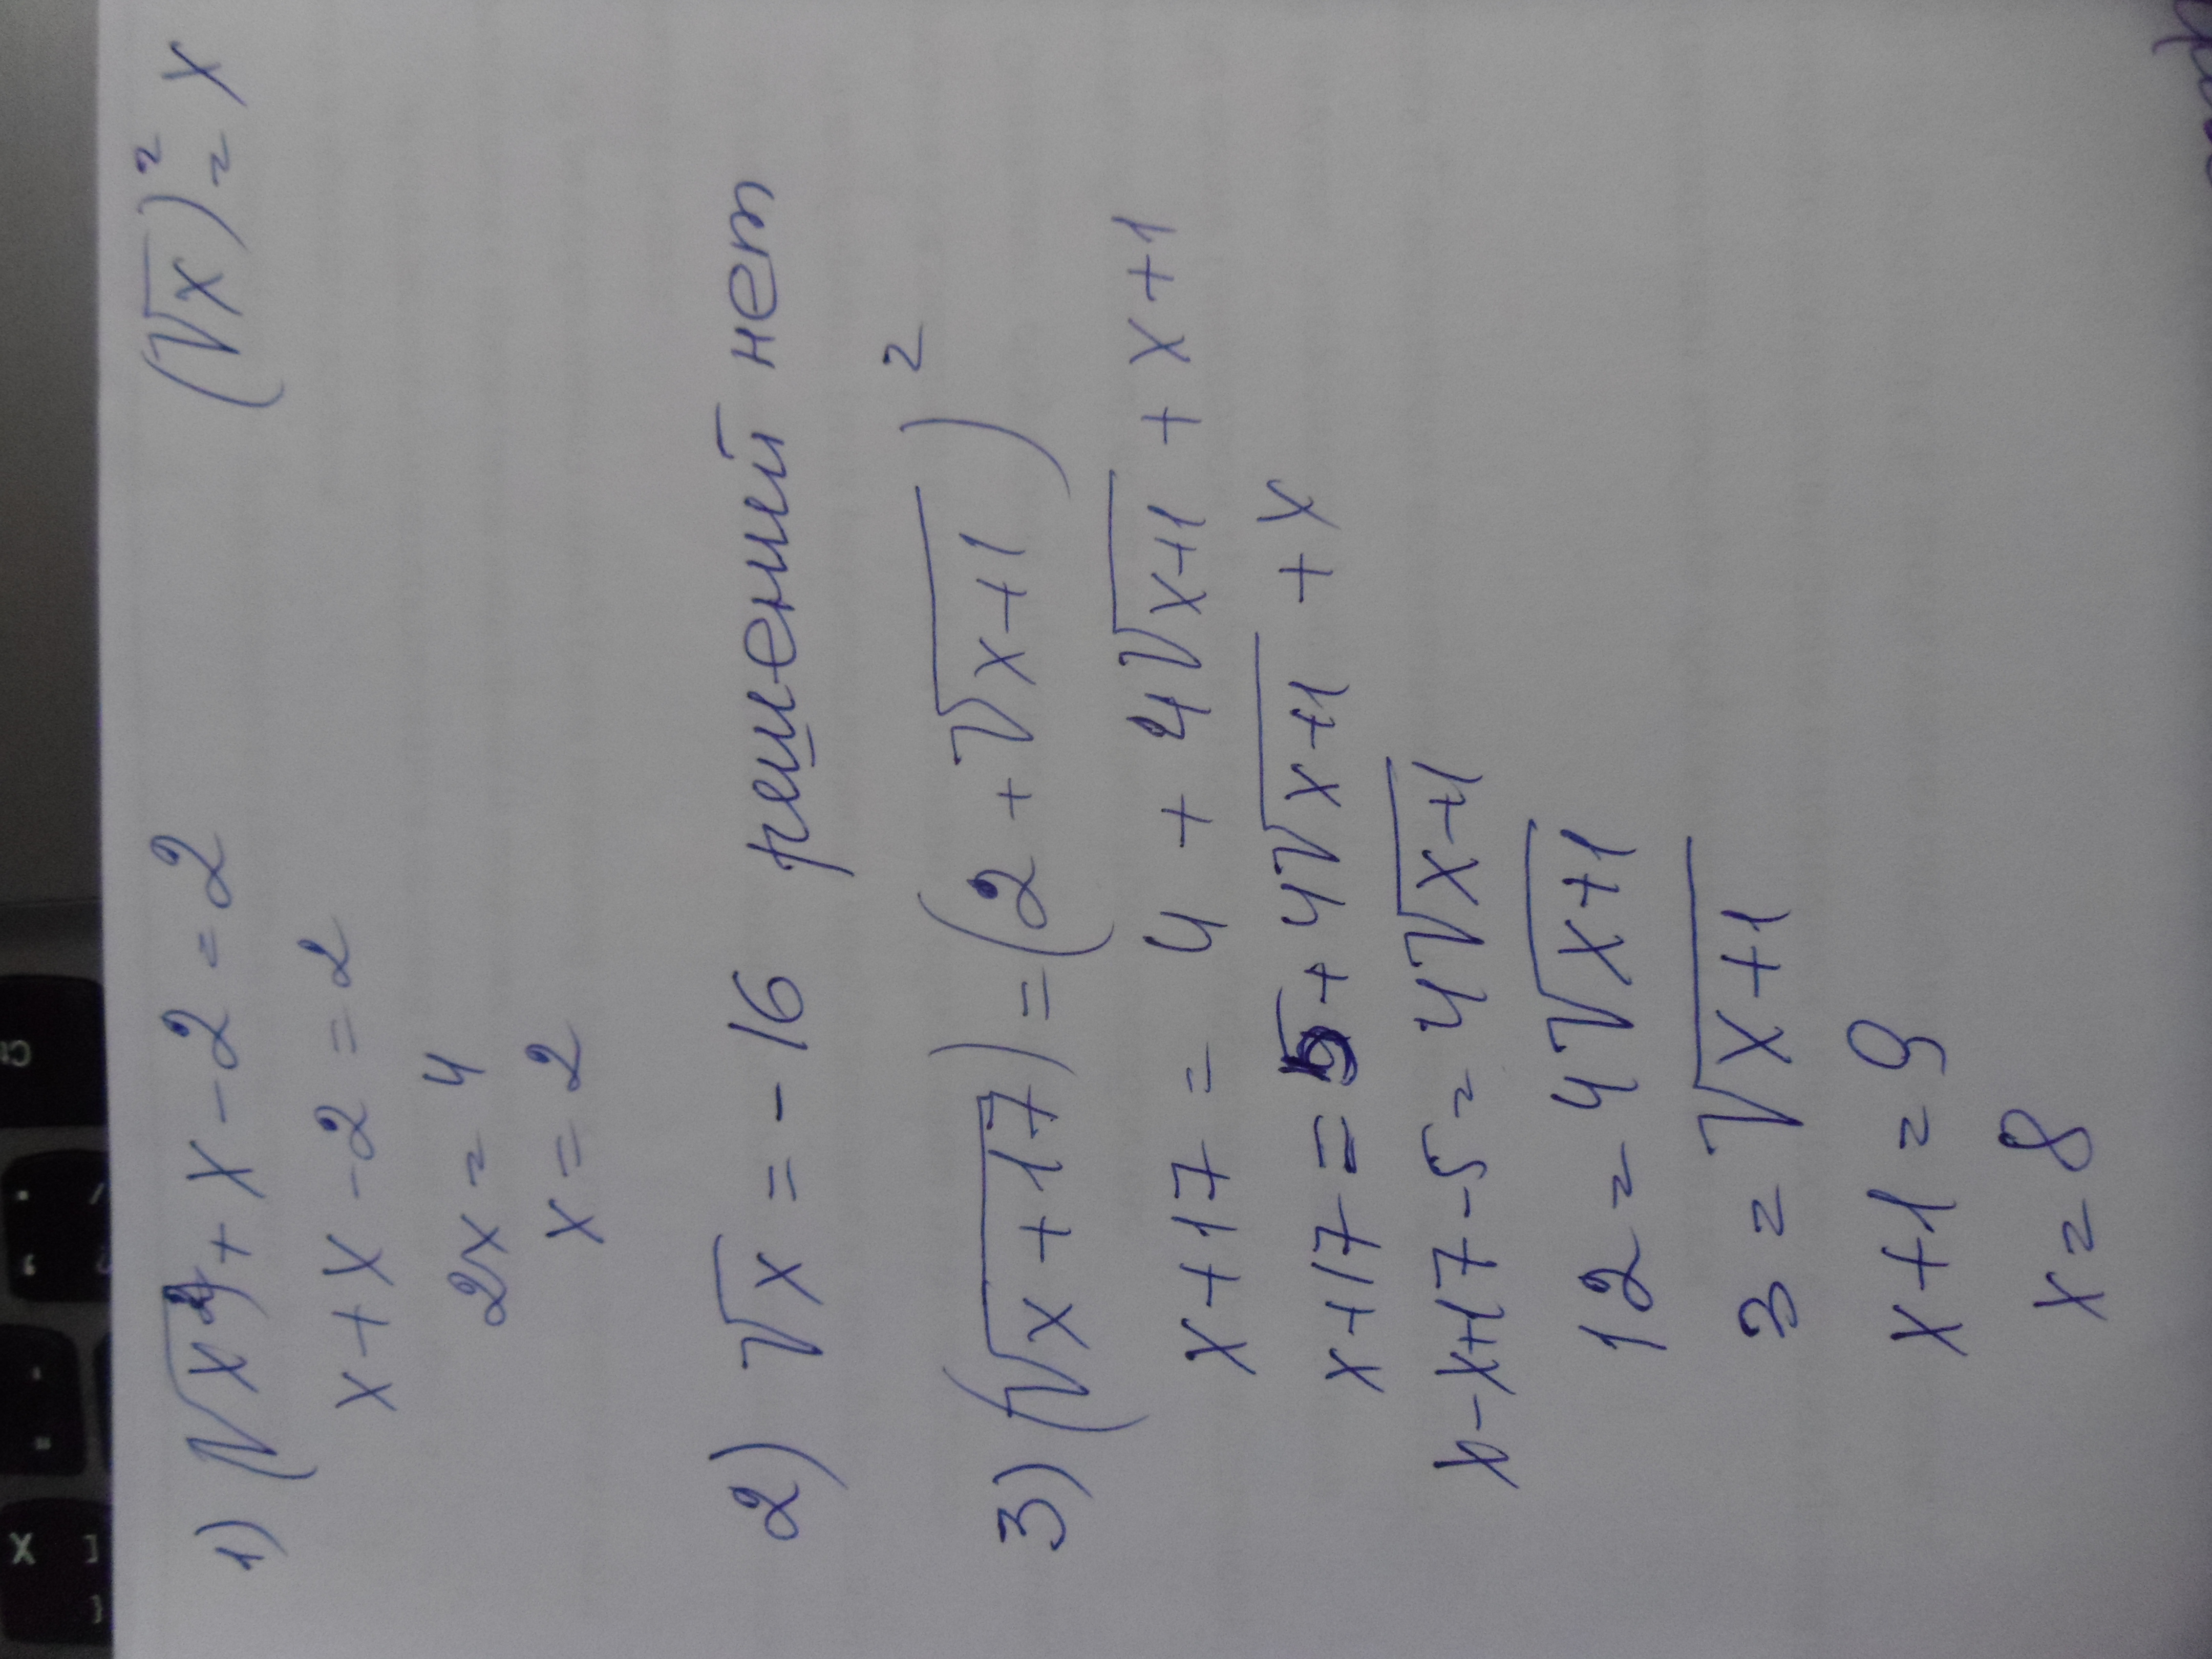 1) (√x)² + x - 2 = 2 (√x)² = x
x + x - 2 = 2
2x = 4
x = 2
2) √x = -16 решений нет
3) (√x+17) = (2 + √x+1)²
x + 17 = 4 + 4√x+1 + x + 1
x + 17 = 5 + 4√x+1 + x
x - x + 17 - 5 = 4√x+1
12 = 4√x+1
3 = √x+1
x + 1 = 9
x = 8